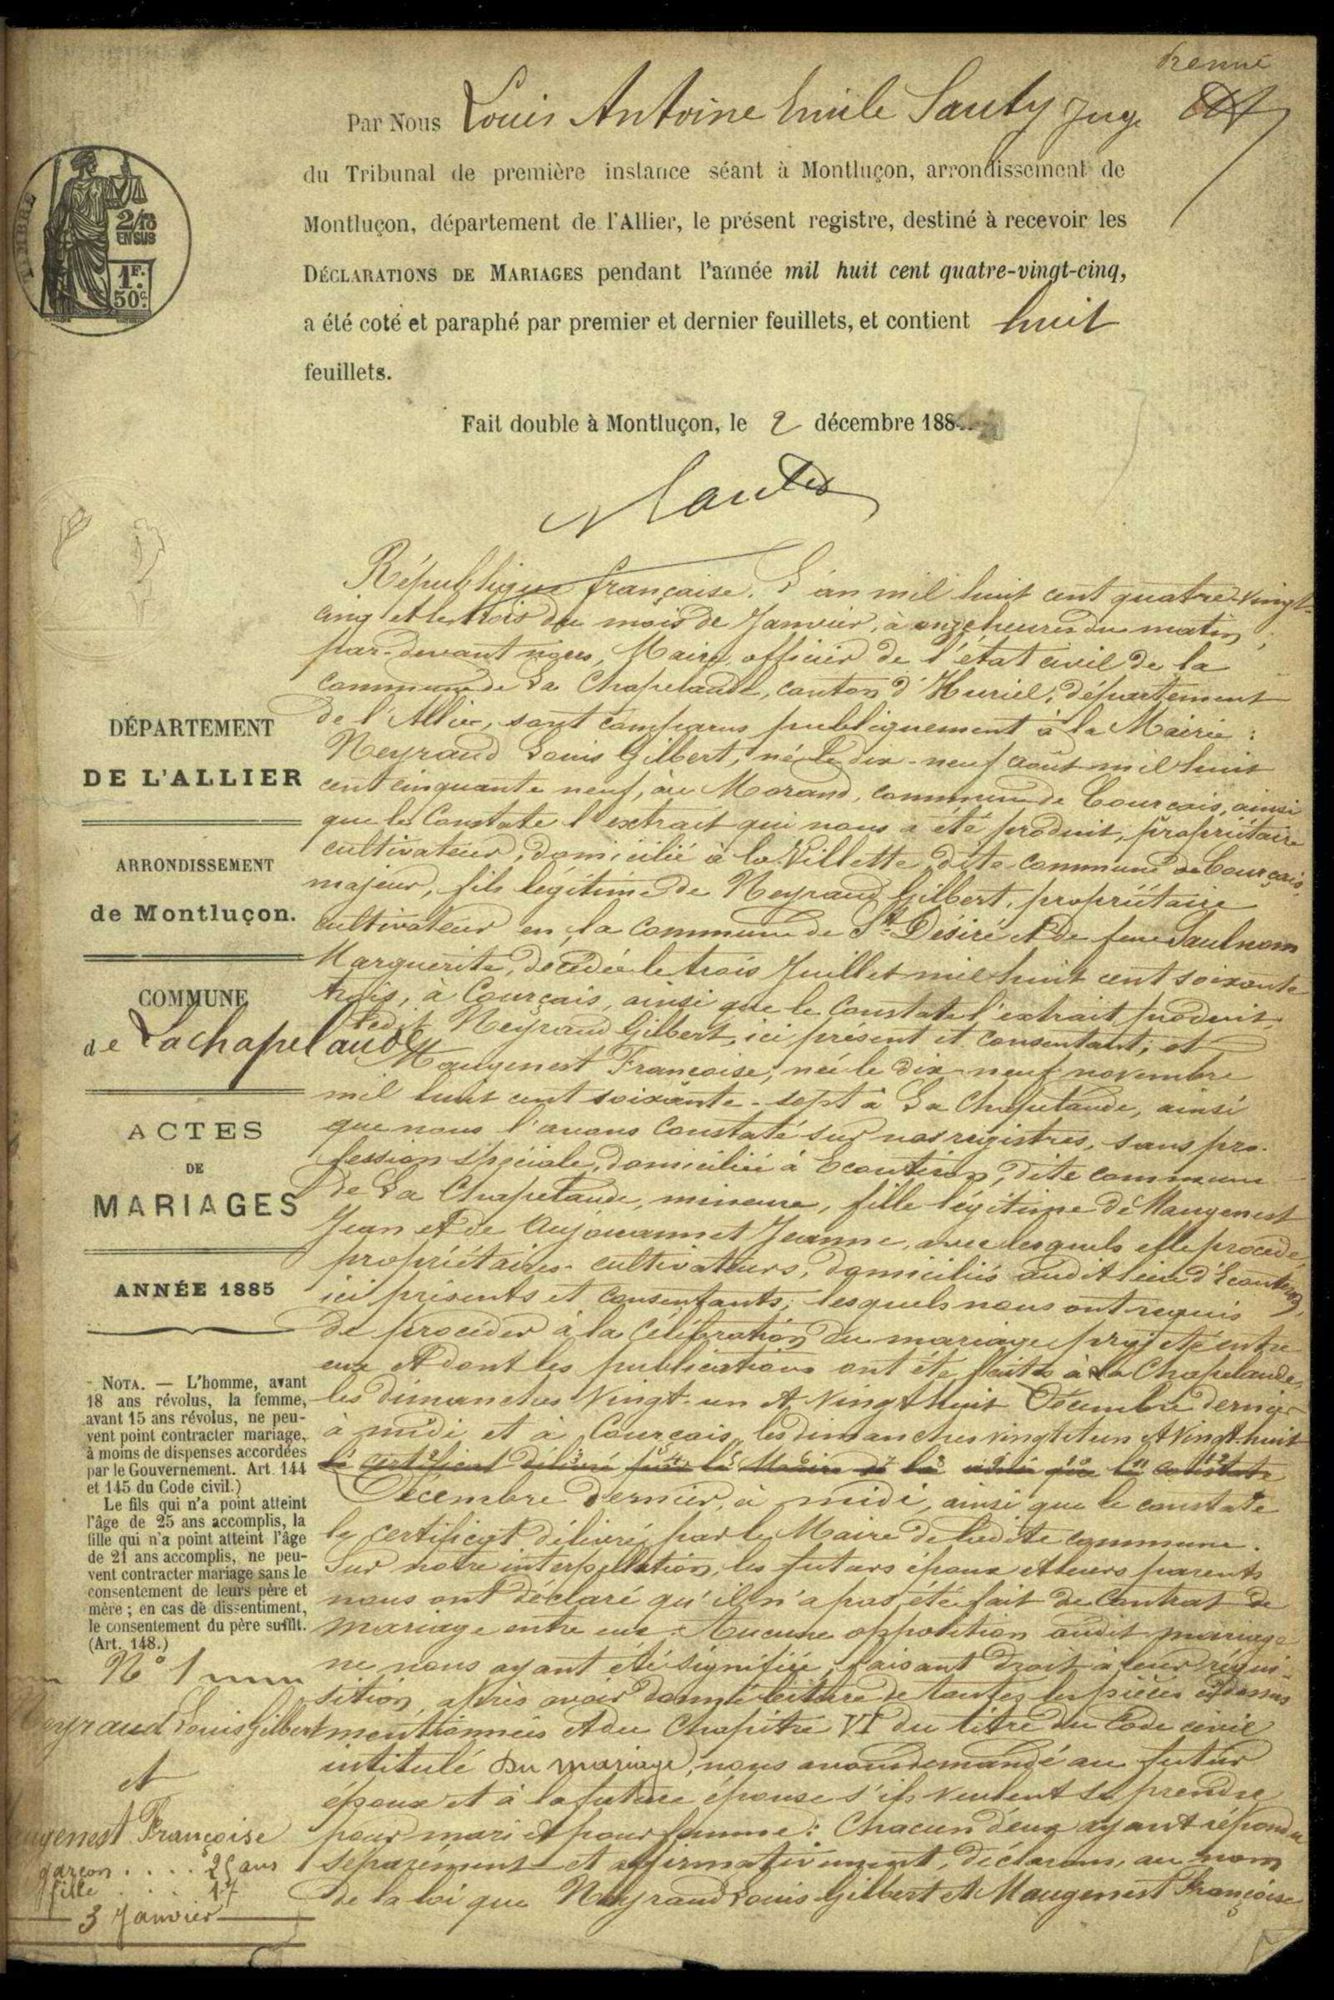 Par Nous Louis Antoine Emile Sauty Juge
du Tribunal de première instance séant à Montluçon, arrondissement de
Montluçon, département de l'Allier, le présent registre, destiné à recevoir les
DÉCLARATIONS DE MARIAGES pendant l'année mil huit cent quatre-vingt-cinq,
a été coté et paraphé par premier et dernier feuillets, et contient huit
feuillets.
Fait double à Montluçon, le 2 décembre 188
TIMBRE
2/10
EN SUS
1F.
50c.
DÉPARTEMENT
DE L'ALLIER
ARRONDISSEMENT
de Montluçon.
COMMUNE
de Lachapelaude
ACTES
DE
MARIAGES
ANNÉE 1885
NOTA. — L'homme, avant
18 ans révolus, la femme,
avant 15 ans révolus, ne peu-
vent point contracter mariage,
à moins de dispenses accordées
par le Gouvernement. Art. 144
et 145 du Code civil.)
Le fils qui n'a point atteint
l'âge de 25 ans accomplis, la
fille qui n'a point atteint l'âge
de 21 ans accomplis, ne peu-
vent contracter mariage sans le
consentement de leurs père et
mère ; en cas de dissentiment,
le consentement du père suffit.
(Art. 148.)
N° 1
Neyraud Louis Gilbert
et
Maugenest Françoise
garçon . . . . 25 ans
fille . . . . 17
3 Janvier
République française. L'an mil huit cent quatre-vingt-
cinq et le trois du mois de Janvier, à onze heures du matin,
par-devant nous, Maire, officier de l'état civil de la
commune de La Chapelaude, canton d'Huriel, département
de l'Allier, sont comparus publiquement à la Mairie :
Neyraud Louis Gilbert, né le dix-neuf août mil huit
cent cinquante neuf, au Morand, commune de Courçais, ainsi
que le constate l'extrait qui nous a été produit, propriétaire
cultivateur, domicilié à la Villette dite commune de Courçais,
majeur, fils légitime de Neyraud Gilbert, propriétaire
cultivateur en la commune de St Désiré et de feue
Marguerite, décédée le trois Juillet mil huit cent soixante
trois, à Courçais, ainsi que le constate l'extrait produit,
ledit Neyraud Gilbert, ici présent et consentant ; et
Maugenest Françoise, née le dix-neuf novembre
mil huit cent soixante-sept à La Chapelaude, ainsi
que nous l'avons constaté sur nos registres, sans pro-
fession spéciale, domiciliée à dite commune
de La Chapelaude, mineure, fille légitime de Maugenest
Jean et de Aujouannet Jeanne, avec lesquels elle procède,
propriétaires-cultivateurs, domiciliés audit lieu
ici présents et consentants ; lesquels nous ont requis
de procéder à la célébration du mariage projeté entre
eux et dont les publications ont été faites à La Chapelaude,
les dimanches vingt-un et vingt-huit Décembre dernier
à midi et à Courçais, les dimanches vingt et un et vingt-huit
le certificat délivré par le Maire de la
Décembre dernier, à midi, ainsi que le constate
le certificat délivré par le Maire de ladite commune.
Sur notre interpellation, les futurs époux et leurs parents
nous ont déclaré qu'il n'a pas été fait de contrat de
mariage entre eux. Aucune opposition audit mariage
ne nous ayant été signifiée, faisant droit à leur réqui-
sition, après avoir donné lecture de toutes les pièces ci-dessus
mentionnées et du chapitre VI du titre du Code civil
intitulé Du Mariage, nous avons demandé au futur
époux et à la future épouse s'ils veulent se prendre
pour mari et pour femme : chacun d'eux ayant répondu
séparément et affirmativement, déclarons, au nom
de la loi que Neyraud Louis Gilbert et Maugenest Françoise